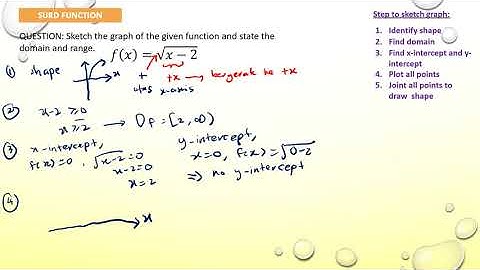 SURD FUNCTION
QUESTION: Sketch the graph of the given function and state the
domain and range.
f(x) = √x − 2
(1) shape
x
+
atas x-axis
+x → bergerak ke +x
(2) x-2 ≥ 0
x ≥ 2 → Df = [2, ∞)
(3) x-intercept,
f(x)=0, √x-2 = 0
x-2=0
x=2
y-intercept,
x=0, f(x)=√0-2
⇒ no y-intercept
(4)
x
Step to sketch graph:
1. Identify shape
2. Find domain
3. Find x-intercept and y-
intercept
4. Plot all points
5. Joint all points to
draw shape